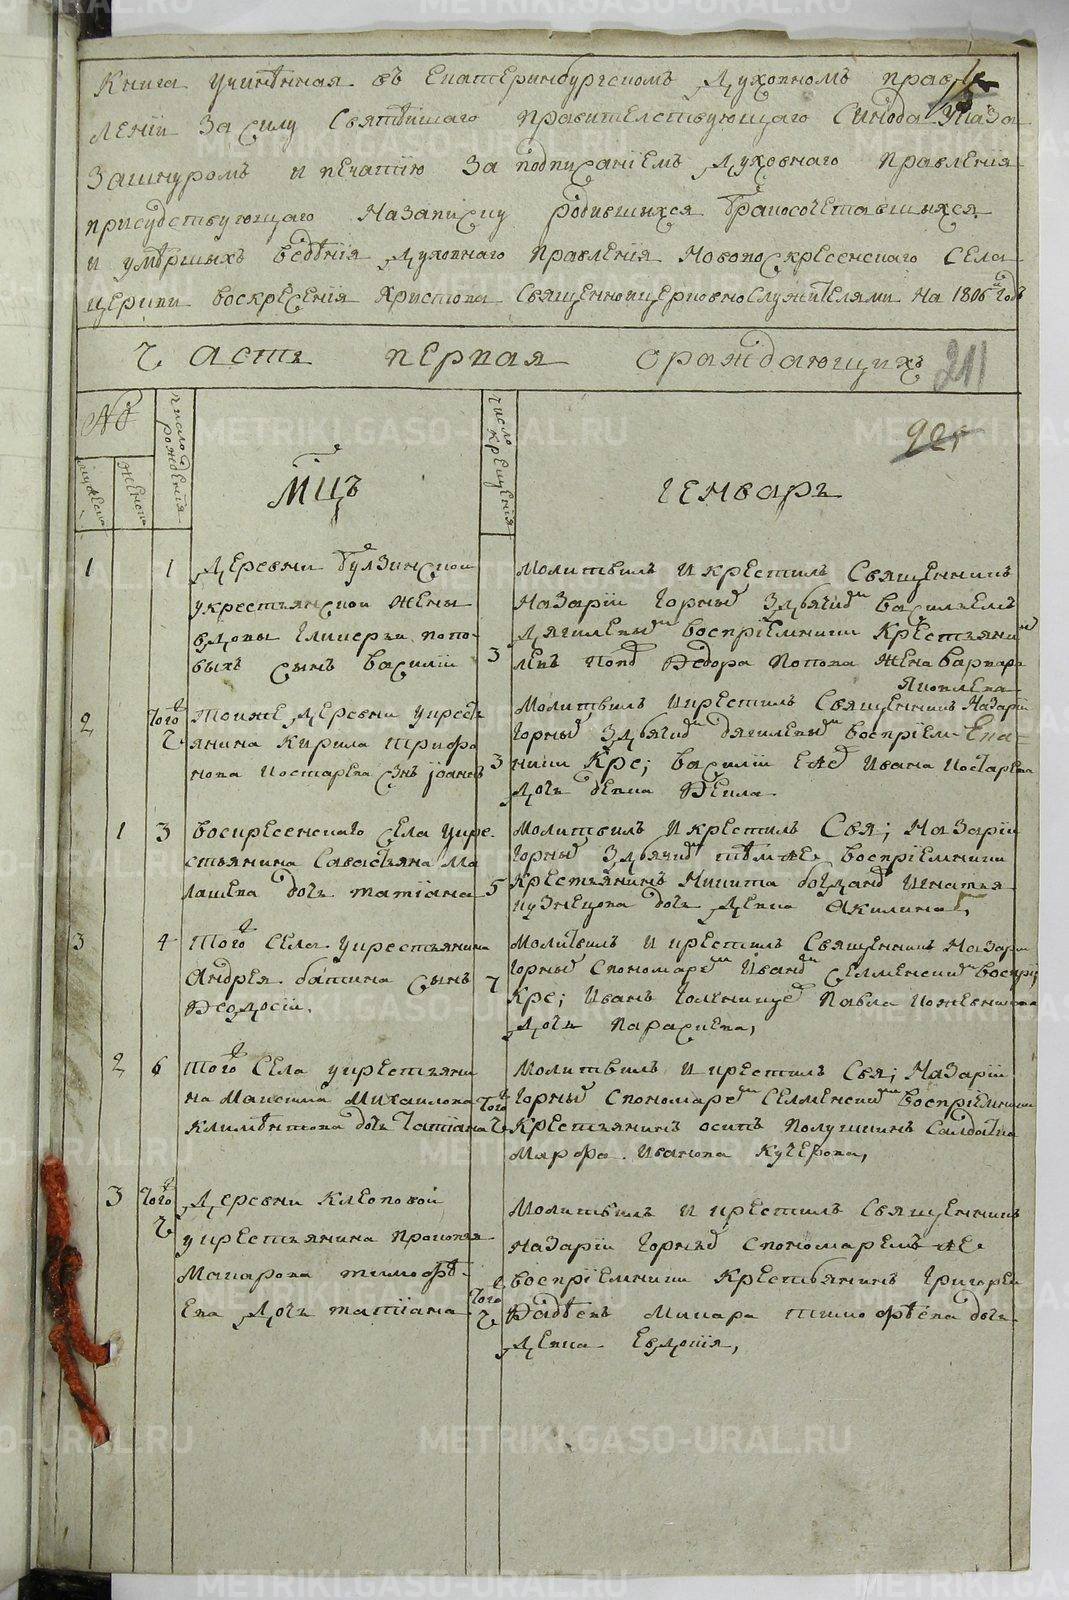 Книга учинѣнная въ Екатеринбургскомъ Духовномъ прав
лении за силу Святѣйшаго правителствующаго Синода Указа
Зашнуромъ и печатїю За подписанїемъ Духовнаго правления
присудствующаго Назаписку родившихся бракосочетавшихся
и умѣршыхъ ведѣнїя Духовнаго правленїя Нововоскресенскаго Села
церкви воскресенїя Христова Священноицерковнослужителями на 1806й годъ
Часть первая ораждающихъ
211
№
мужеск
женск
число рожденїя
Мцъ
число крещенїя
генварь
1 1 Деревни булзинской
укрестьянской жены
вдовы Гликерьи попо-
выхъ сынъ василии
3
Молитвилъ и крестилъ Священникъ
Назарїи горный Здьячкомъ васильемъ
Дягилевым восприемники крестьянин
Левъ попов Федора попова жена варвара
Яковлева
2 того ч Тойже Деревни укрест
янина Кирила трифо
нова Костарева снъ іоаннъ
3
Молитвилъ икрестилъ Священникъ Назарїи
горный Здьячком дягилевым восприем-
ники Кре; василїи Ивана Костарева
Дочь девка Фекла
1 3 воскресенскаго села укре-
стьянина Савастьяна Ма
лашева дочь татїана
5
Молитвилъ и крестилъ Свя; Назарїи
горный Здьячком тѣмже восприемники
Крестьянинъ Никита Игнатья
кузнецова дочь Девка Акилина,
3 4 того села укрестьянина
Андрея батина сынъ
Феодосїи.
7
Молитвилъ и крестилъ Священникъ Назарїи
горный спономарем Иваном Селменским воспрї;
Кре; Иванъ Павла Кожевникова
Дочь Параскева,
2 6 того села укрестьяни
на Максима Михаилова
Климѣнтова дочь татїана
того ч
Молитвилъ и крестилъ Свя; Назарїи
горный спономарем Селменским восприемники
Крестьянинъ осипъ Полушинъ Салдатка
Марфа Иванова Кучерова,
3 того ч Деревни Клеповой
укрестьянина прокопья
Макарова тимофѣ-
ева Дочь татїана
того ч
Молитвилъ и крестилъ Священникъ
Назарїи горный спономаремъ же
восприемники крестьянинъ григорей
Фадѣевъ Макара тимофѣева дочь
Девка Евдокїя,
METRIKI.GASO-URAL.RU